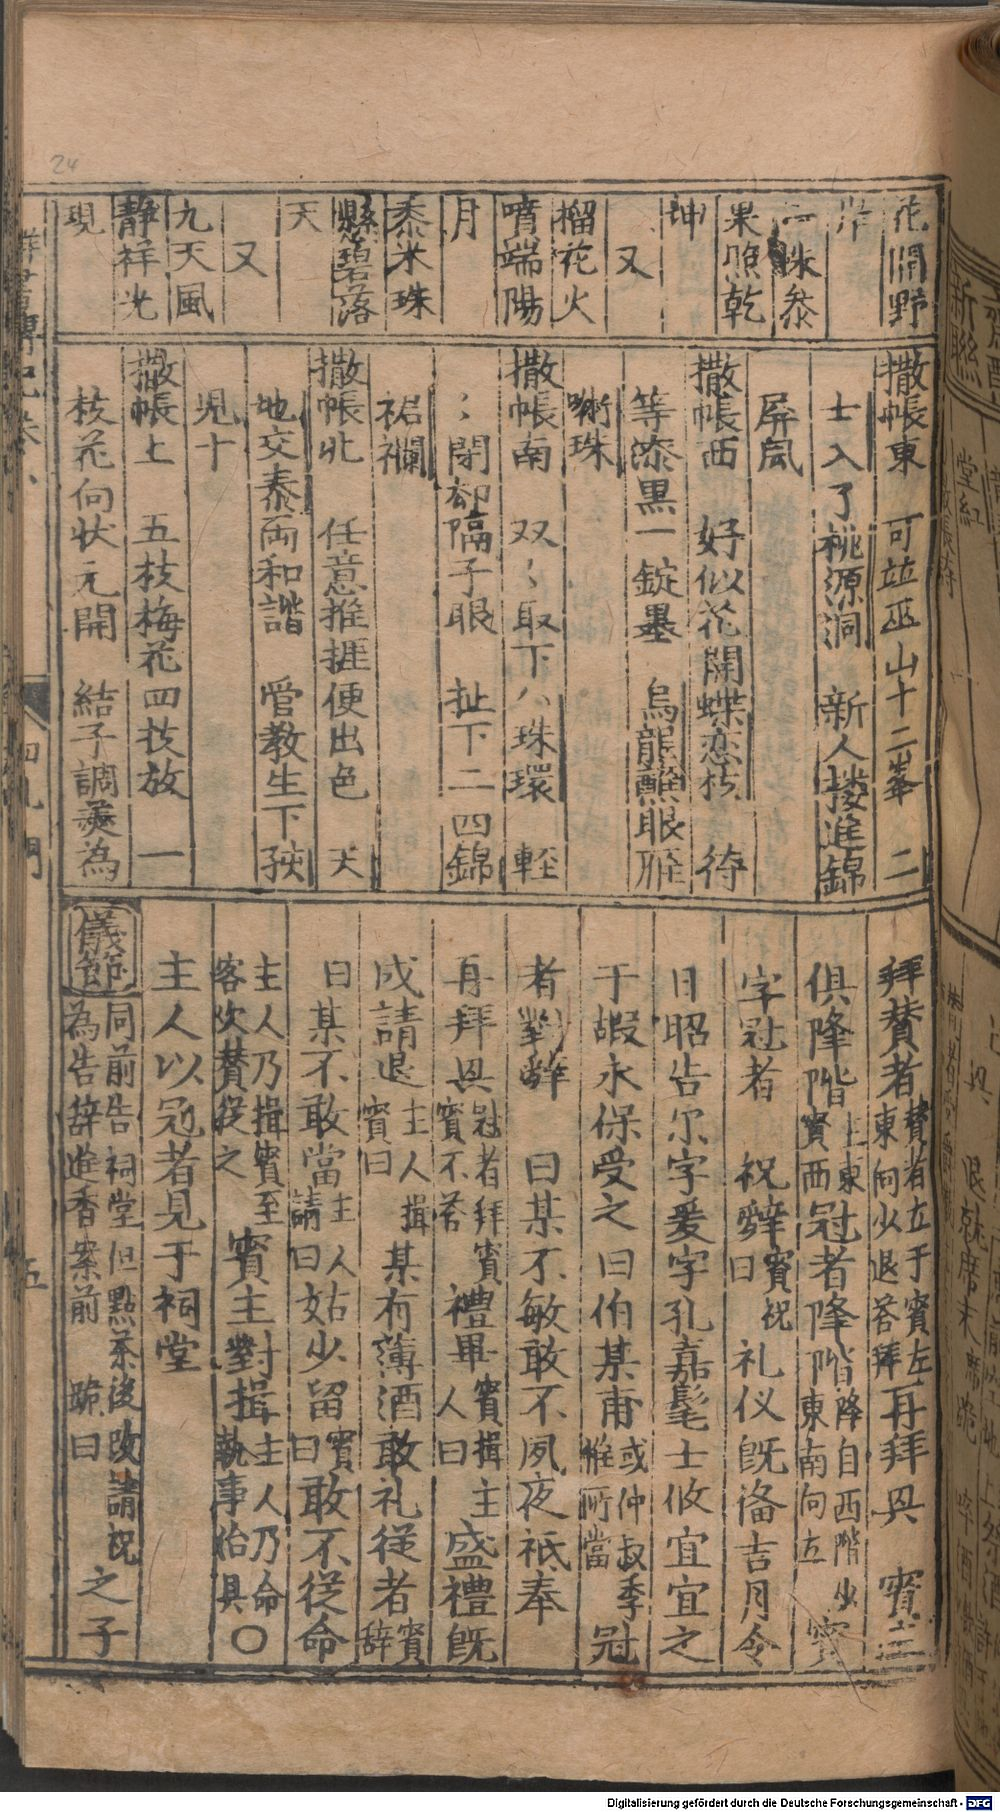 花開野
岸
一珠泰
果照乾
坤
又
榴花火
噴端陽
月
黍米珠
縣碧落
天
又
九天風
靜祥光
現
撒帳東 可竝巫山十二峯 二
士入了桃源洞 新人搂進錦
屏風
撒帳西 好似花開蝶恋枝 待
等漆黒一錠墨 烏龍蘸眼硏
珠
撒帳南 双〻取下八珠環 輕
〻閉却隔子眼 扯下二四錦
裙襴
撒帳北 任意推捱便出色 天
地交泰両和諧 管教生下孩
児十
撒帳上 五枝梅花四技放 一
枝花向状元開 結子調羹為
拜賛者賛者立于賓左東向少退荅拜再拜具 賓主
俱降階主東賓西冠者降階降自西階少東南向立賓
字冠者 祝辭賓祝曰礼仪既俻吉月令
日昭告尔字爰字孔嘉髦士攸宜宜之
于嘏永保受之曰伯某甫或仲叔季惟所當冠
者對辭 曰某不敏敢不夙夜祇奉
再拜具冠者拜賓賓不荅禮畢賓揖主人曰盛禮既
成請退主人揖賓曰某有薄酒敢礼從者賓辞
曰某不敢當主人請曰姑少留賓曰敢不從命
主人乃揖賓至客次賛從之賓主對揖主人乃命執事始具〇
主人以冠者見于祠堂
儀節同前告祠堂但點茶後改請祝為告辞進香案前 跪曰之子
四九門
五
24
新聯
Digitalisierung gefördert durch die Deutsche Forschungsgemeinschaft - DFG